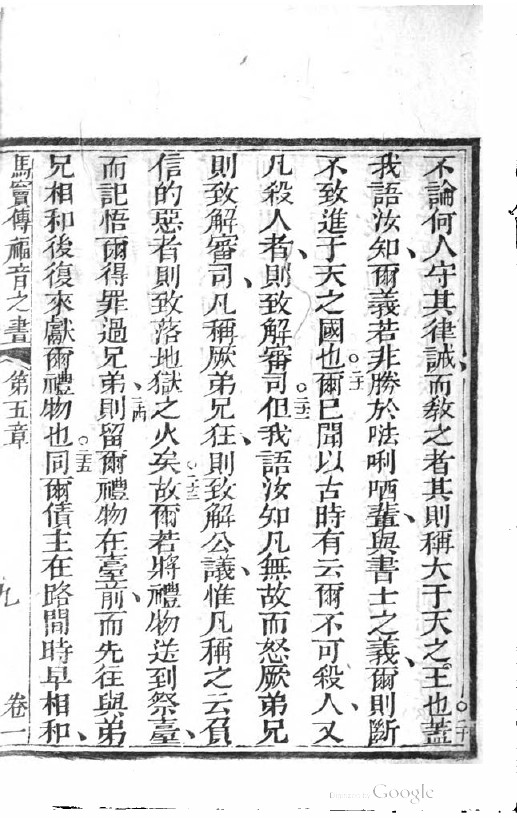 不論何人守其律誡、而教之者其則稱大于天之王也。二十蓋
我語汝知爾義若非勝於𠵽唎哂輩、與書士之義、爾則斷
不致進于天之國也。二十一爾已聞以古時有云爾不可殺人、又
凡殺人者、則致解審司。二十二但我語汝知凡無故而怒厥弟兄、
則致解審司、凡稱厥弟兄狂、則致解公議、惟凡稱之云負
信的惡者則致落地獄之火矣。二十三故爾若將禮物送到祭臺、
而記悟爾得罪過兄弟、二十四則留爾禮物在臺前、而先往與弟
兄相和後復來獻爾禮物也。二十五同爾債主在路間時早相和、
馬竇傳福音之書 第五章 九 卷一
Digitized by Google